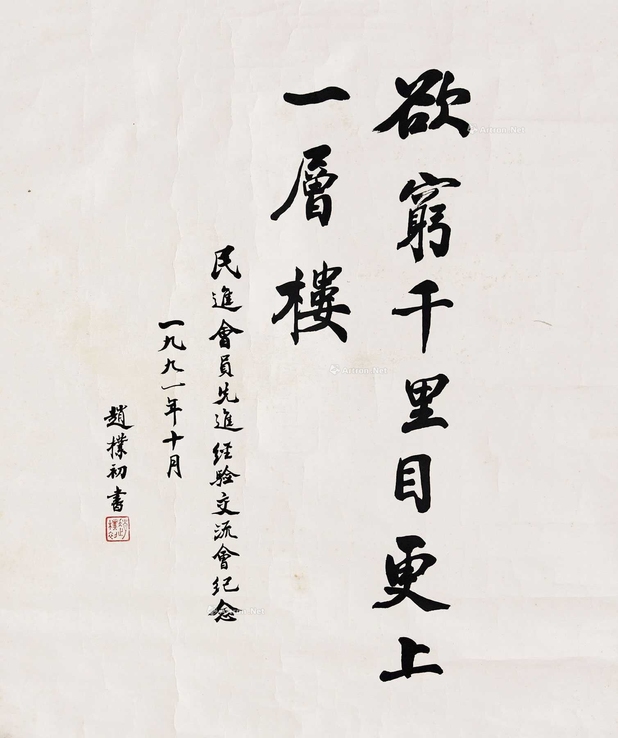 欲窮千里目更上
一層樓
民進會員先進经验交流會纪念
一九九一年十月
趙樸初書
Artron.Net
Artron.Net
Artron.Net